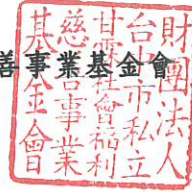 善事業基金會
財團法人
台中市私立
甘霖社會福利
慈善事業
基金會